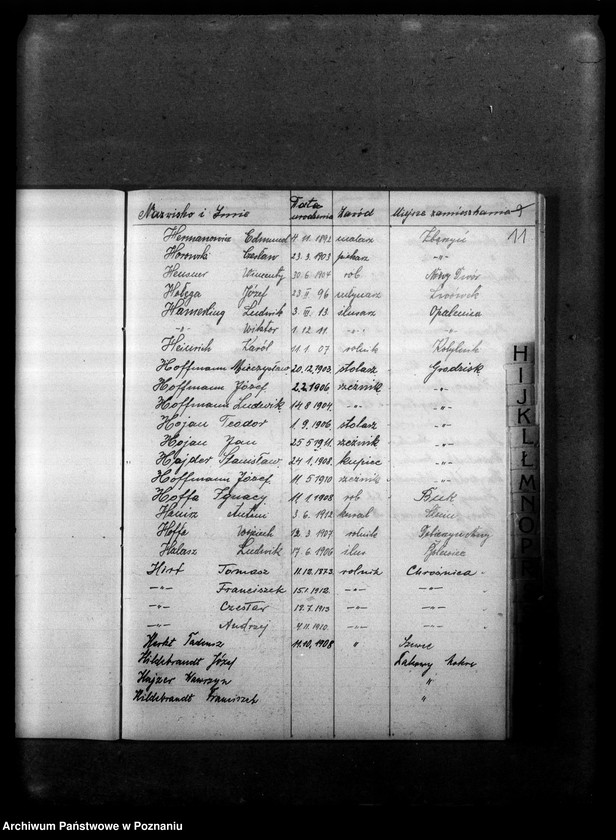 Nazwisko i Imię Data urodzenia Zawód Miejsce zamieszkania
11
Hermanowicz Edmund 4.11.1892 malarz Zbąszyń
Horowski Czesław 23.3.1903 piekarz -"-
Heuser Wincenty 30.6.1904 rob Nowy Dwór
Hołęga Józef 23.II 96 młynarz Lwówek
Hamerling Ludwik 3.III.13 ślusarz Opalenica
-"- Wiktor 1.12.11 -"- -"-
Heinrich Karol 11.1.07 rolnik
Hoffmann Mieczysław 20.12.1903 stolarz Grodzisk
Hoffmann Józef 2.2.1906 rzeźnik -"-
Hoffmann Ludwik 14.8.1904 -"- -"-
Hojan Teodor 1.9.1906 stolarz -"-
Hojan Jan 25.5.1911 rzeźnik -"-
Hajder Stanisław 24.1.1908 kupiec -"-
Hoffmann Józef 11.5.1910 rzeźnik -"-
Hoffa Ignacy 11.1.1908 rob Buk
Antoni 3.6.1912 kowal
Hoffa Wojciech 12.3.1907 rolnik
Hałasz Ludwik 17.6.1906 ślus
Hirt Tomasz 11.12.1873 rolnik Chrośnica
-"- Franciszek 15.1.1912 -"- -"-
-"- Czesław 12.7.1913 -"- -"-
-"- Andrzej 4.11.1910 -"- -"-
Herkt Tadeusz 11.10.1908 "
Hildebrandt Józef
Hajzer Wawrzyn "
Hildebrandt Franciszek "
H
I
J
K
L,Ł
M
N
O
P
Archiwum Państwowe w Poznaniu